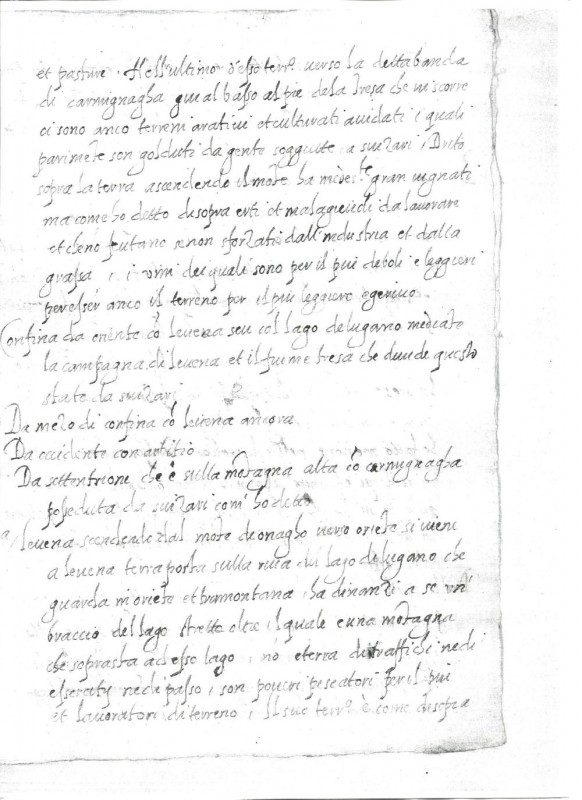 et pasture. Nell'ultimo d'esso terr.o verso la detta banda
di carmignagha giu al basso al pie dela tresa che vi scorre
ci sono anco terreni arativi et culturati avidati i quali
parimēte son golduti da gente soggiette a svizari. Drēto
sopra la terra ascendendo il mōte ha gran vignati
ma come ho detto di sopra erti et malagievoli da lavorare
et che nō fruttano se non sforzati dall'industria et dalla
grassa, i vini dei quali sono per il piu deboli e leggieri
per esser anco il terreno per il piu leggiero e
Confina da oriente cō levena seu col lago de lugano mediāte
la campagna di levena et il fiume tresa che divide questo
stato da svizari
Da mezo di confina cō levena ancora
Da occidente con
Da settentrione che è sulla mōtagna alta cō carmignagha
posseduta da svizari com'ho detto
levena scendendo dal mōte de onagho verso oriēte si viene
a levena terra posta sulla riva del lago de lugano che
guarda in oriēte et tramontana, ha dinanzi a se un
braccio del lago stretto oltre il quale e una mōtagna
che soprasta ad esso lago, nō e terra di traffichi ne di
ne di passo, son poveri pescatori per il piu
et lavoratori di terreno, Il suo terr.o e come disopra